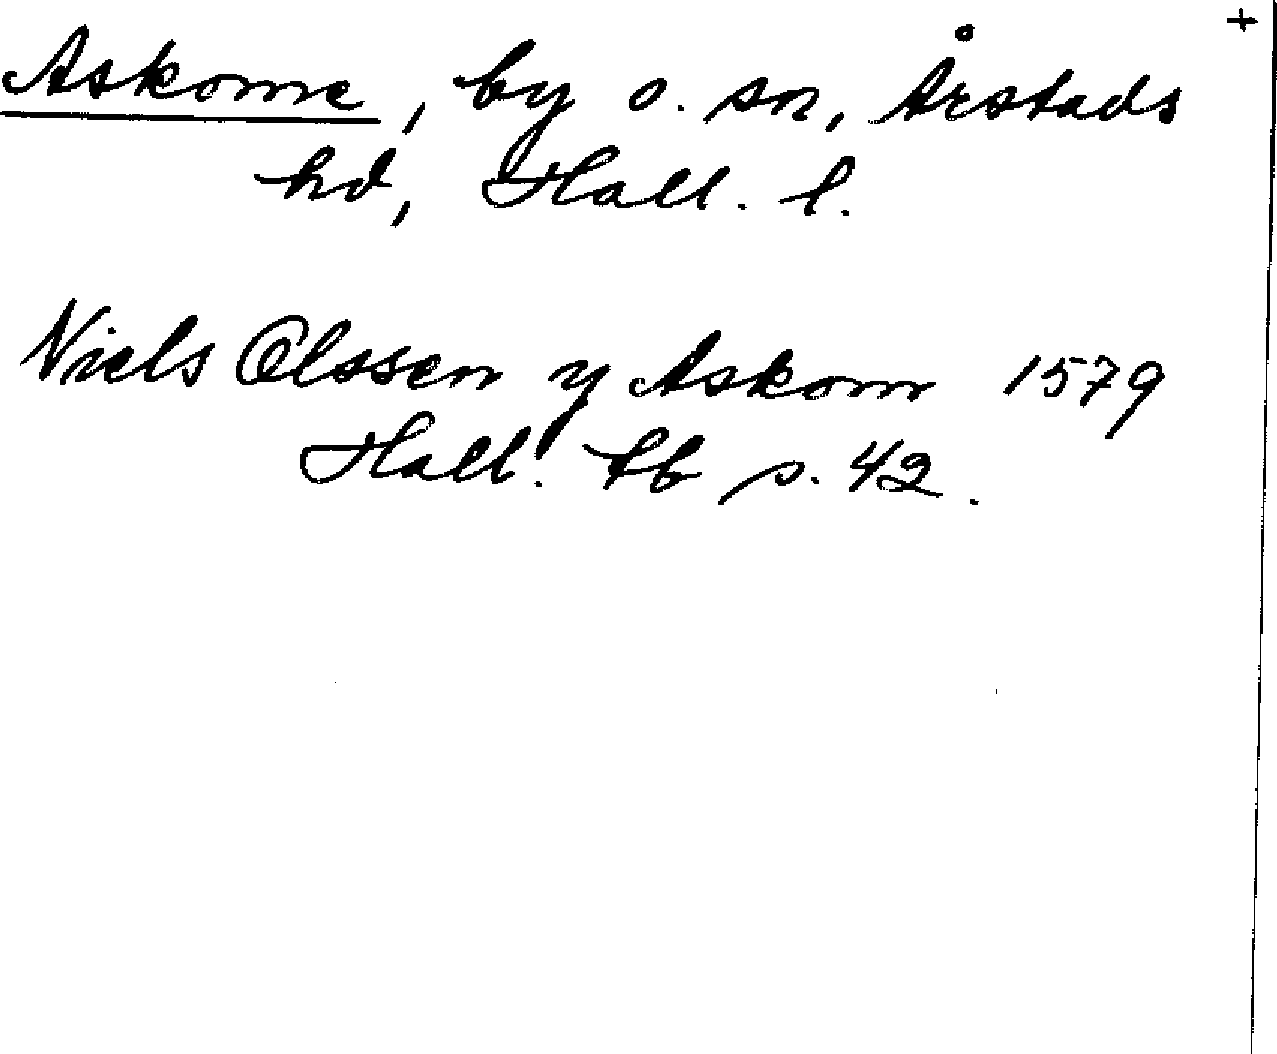 +
Askome, by o. sn, Årstads
hd, Hall. l.
Niels Olssen y Askom 1579
Hall. tb s. 42.